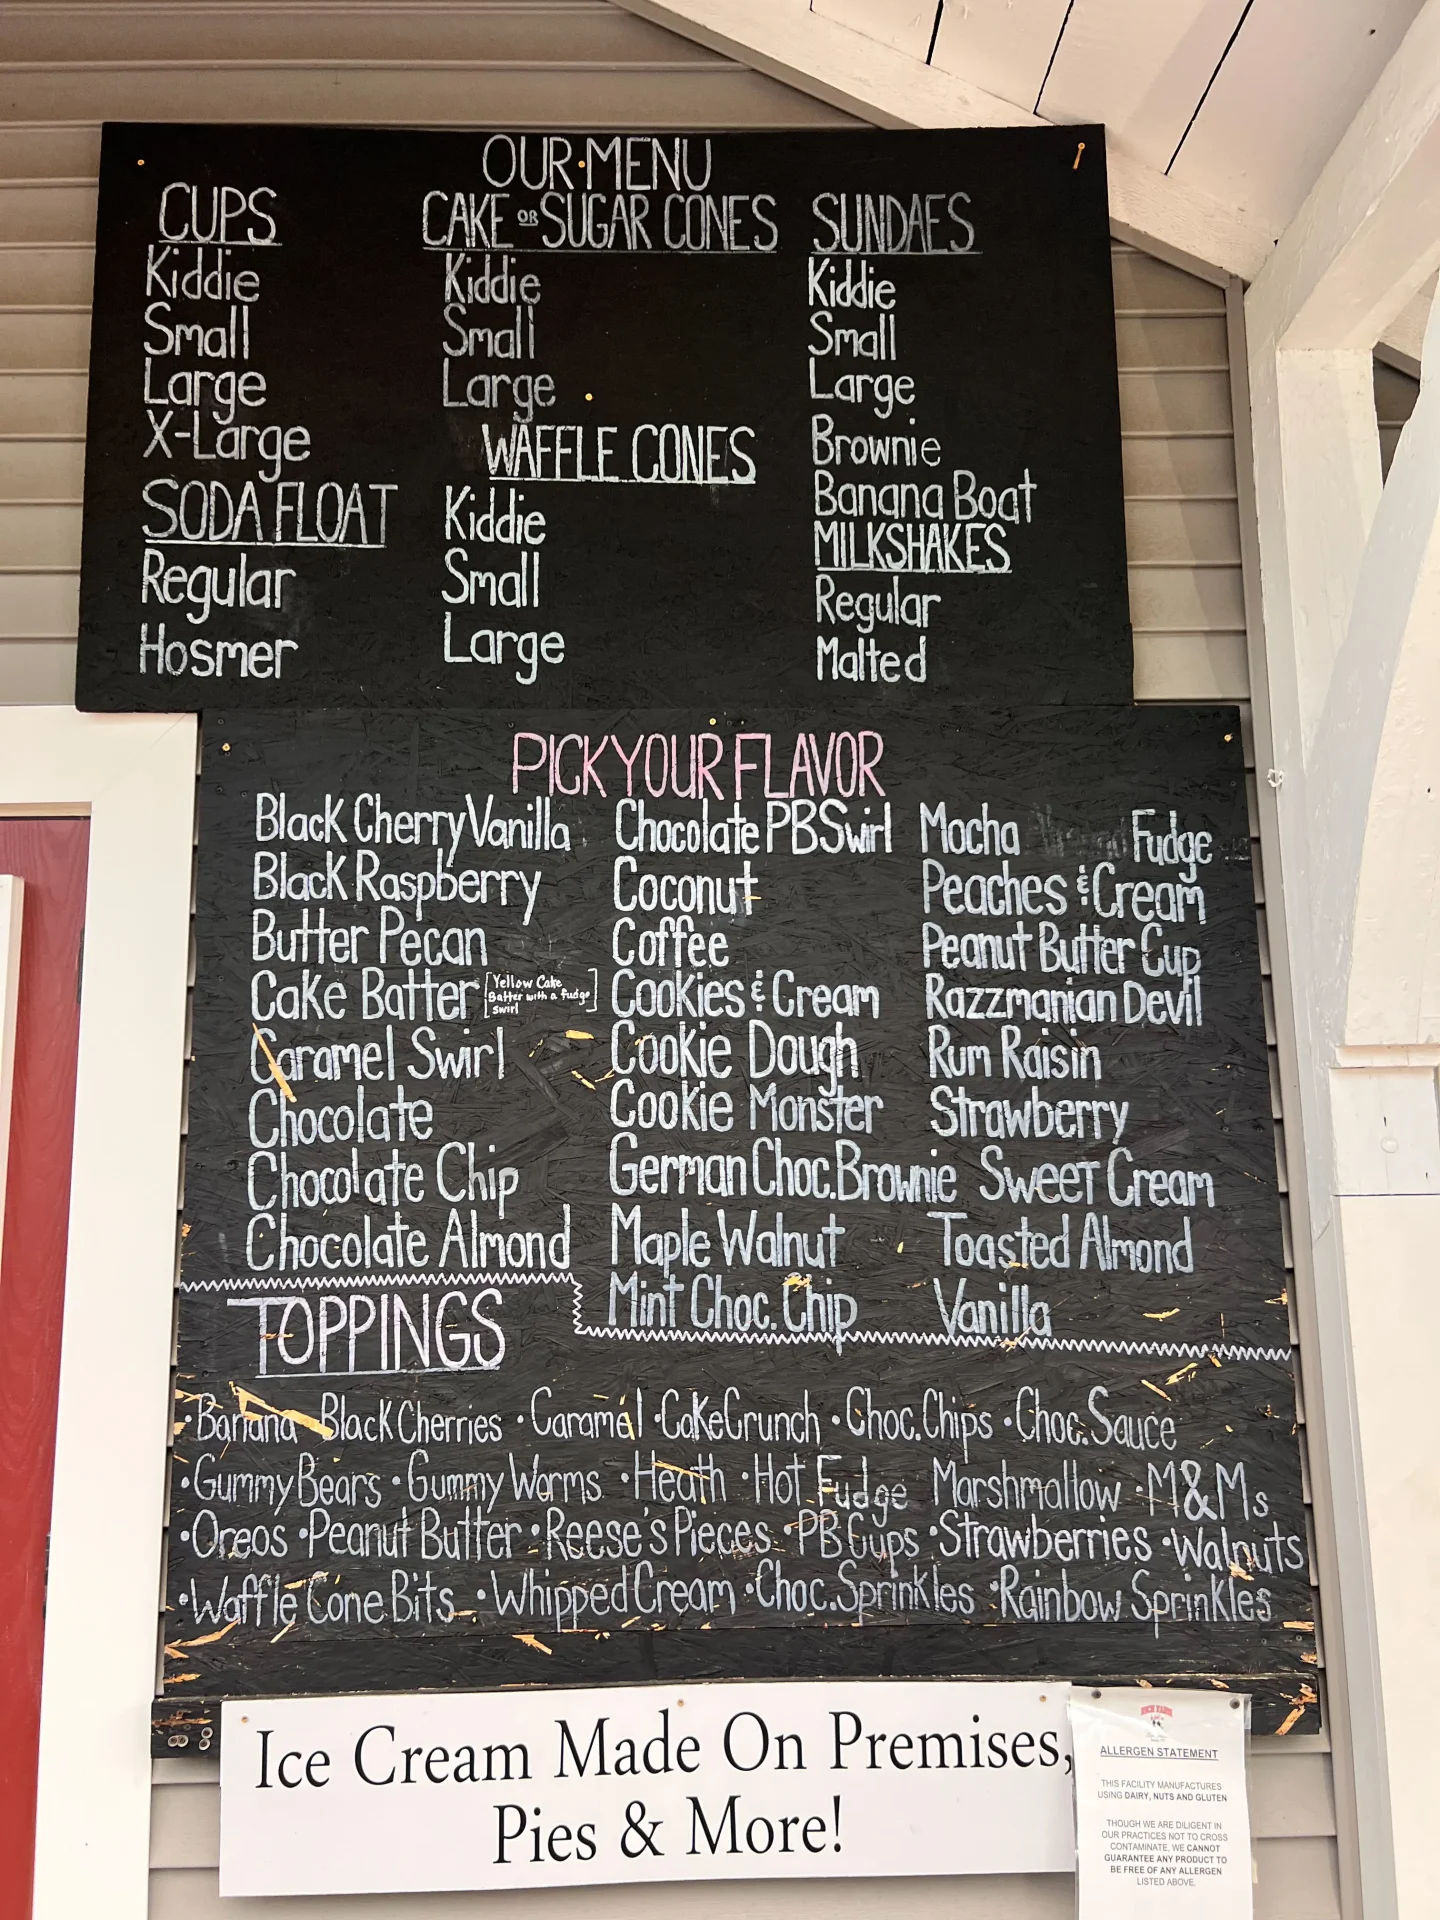 OUR MENU
CUPS
Kiddie
Small
Large
X-Large
SODA FLOAT
Regular
Hosmer
CAKE OR SUGAR CONES
Kiddie
Small
Large
WAFFLE CONES
Kiddie
Small
Large
SUNDAES
Kiddie
Small
Large
Brownie
Banana Boat
MILKSHAKES
Regular
Malted
PICK YOUR FLAVOR
Black Cherry Vanilla
Black Raspberry
Butter Pecan
Cake Batter [Yellow Cake
Batter with a fudge
swirl]
Caramel Swirl
Chocolate
Chocolate Chip
Chocolate Almond
Chocolate PB Swirl
Coconut
Coffee
Cookies & Cream
Cookie Dough
Cookie Monster
German Choc. Brownie
Maple Walnut
Mint Choc. Chip
Mocha Fudge
Peaches & Cream
Peanut Butter Cup
Razzmanian Devil
Rum Raisin
Strawberry
Sweet Cream
Toasted Almond
Vanilla
TOPPINGS
•Banana Black Cherries •Caramel •Cake Crunch •Choc. Chips •Choc. Sauce
•Gummy Bears •Gummy Worms •Heath •Hot Fudge Marshmallow •M&Ms
•Oreos •Peanut Butter •Reese's Pieces •PB Cups •Strawberries •Walnuts
•Waffle Cone Bits •Whipped Cream •Choc. Sprinkles •Rainbow Sprinkles
Ice Cream Made On Premises,
Pies & More!
RICH FARM
ALLERGEN STATEMENT
THIS FACILITY MANUFACTURES
USING DAIRY, NUTS AND GLUTEN
THOUGH WE ARE DILIGENT IN
OUR PRACTICES NOT TO CROSS
CONTAMINATE, WE CANNOT
GUARANTEE ANY PRODUCT TO
BE FREE OF ANY ALLERGEN
LISTED ABOVE.